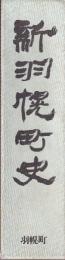 新羽幌町史
羽幌町